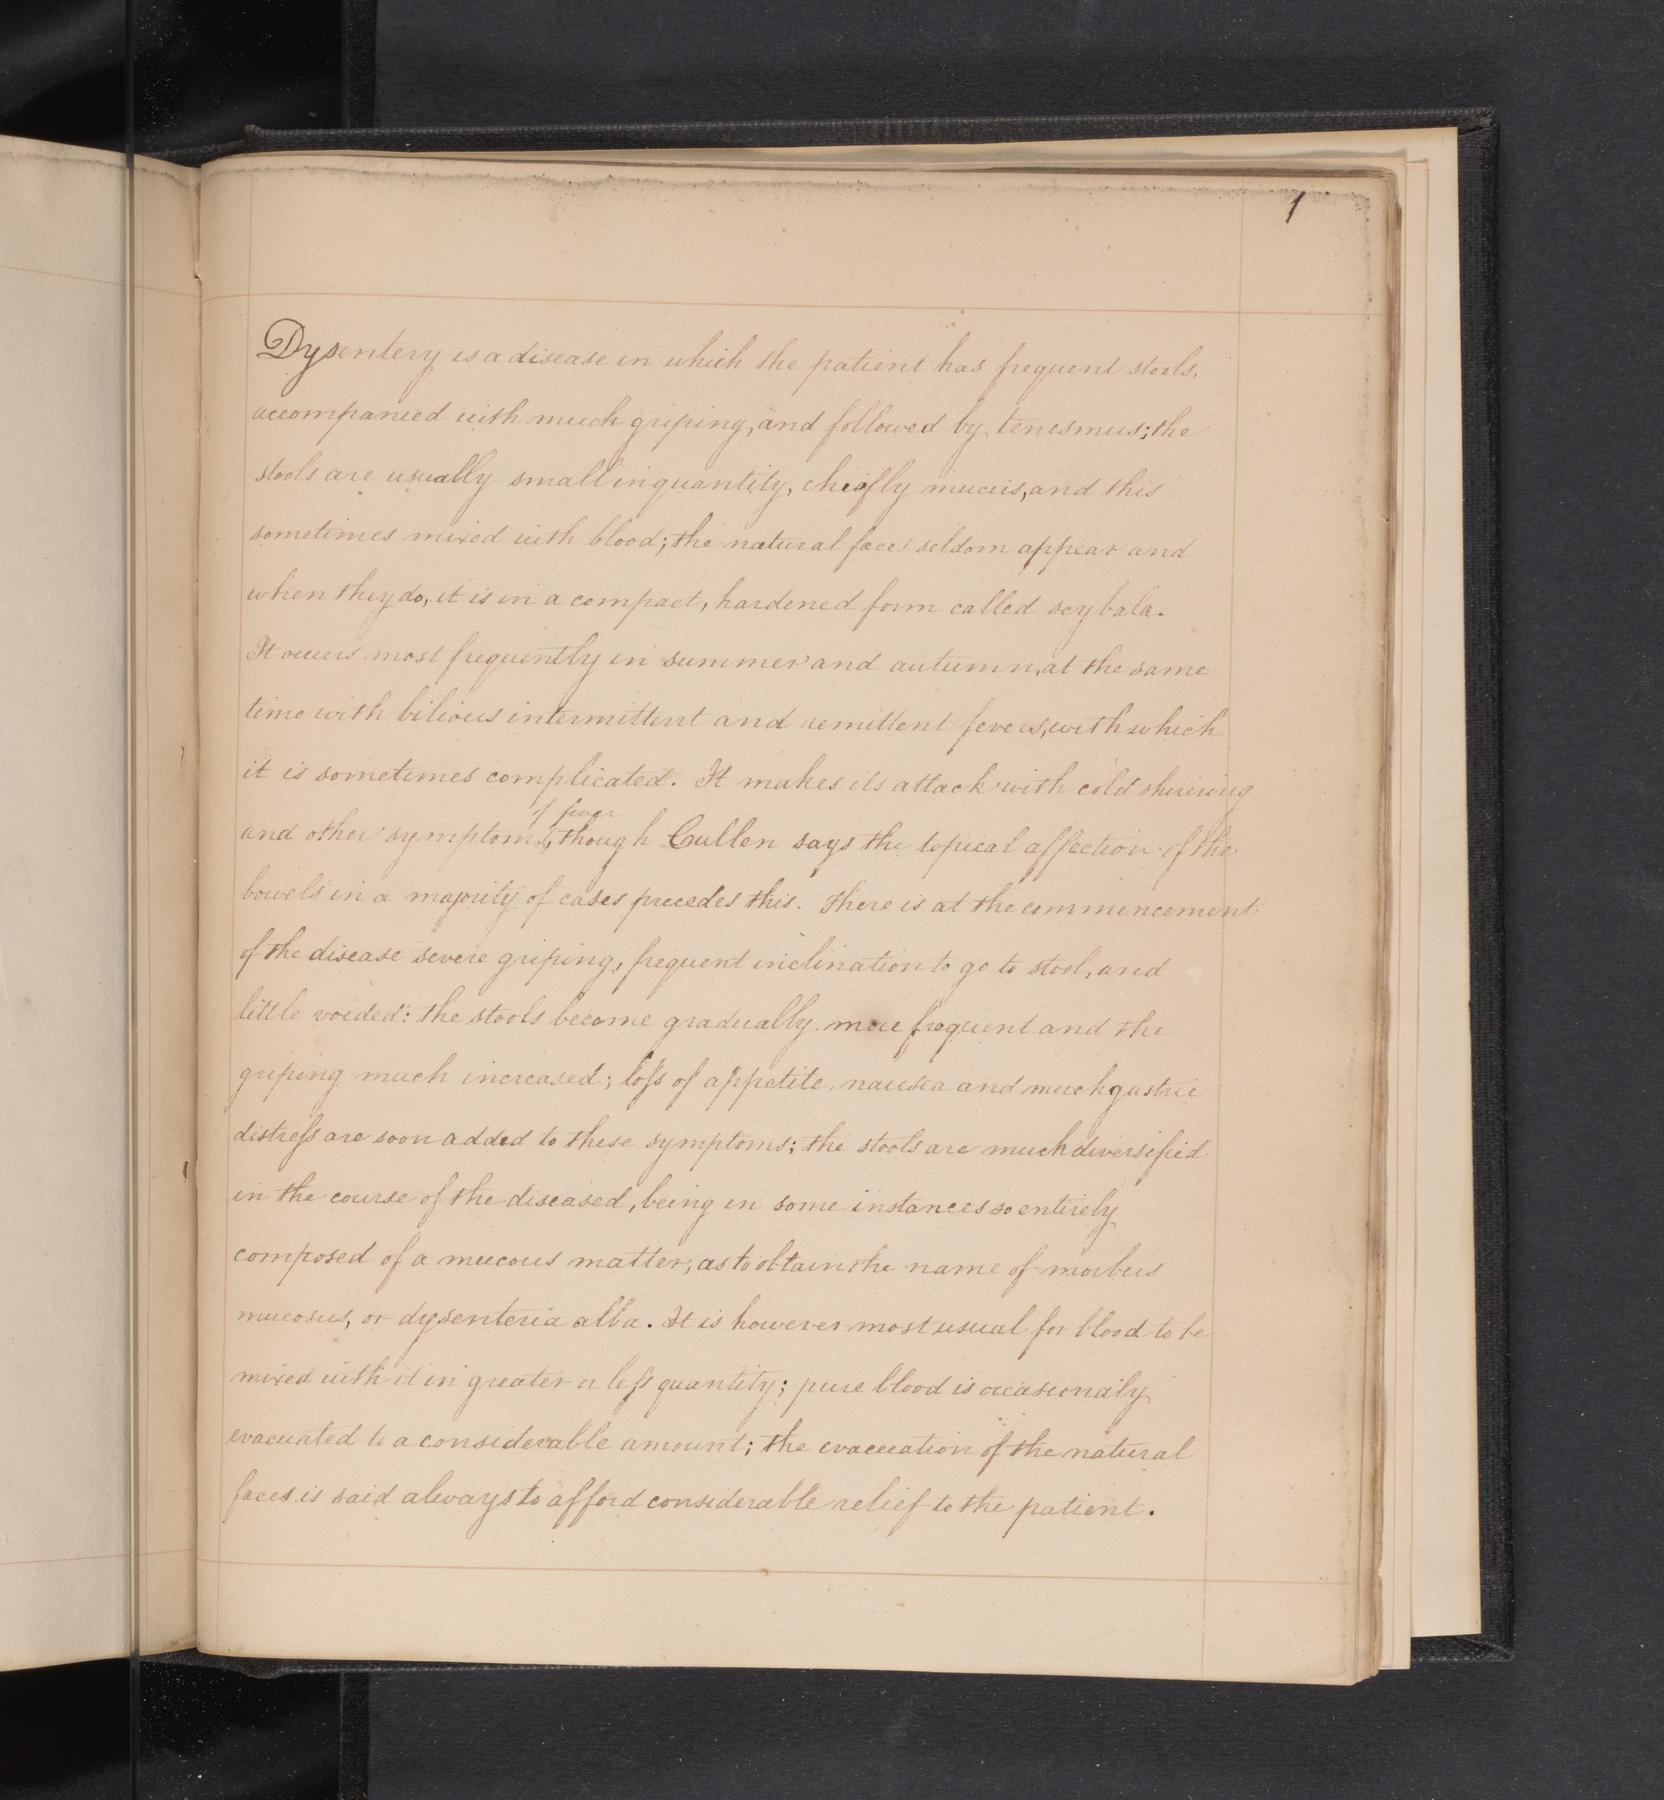 1
Dysentery is a disease in which the patient has frequent stools,
accompanied with much griping, and followed by tenesmus; the
stools are usually small in quantity, chiefly mucus, and this
sometimes mixed with blood; the natural fæces seldom appear and
when they do, it is in a compact, hardened form called scybala.
It occurs most frequently in summer and autumn, at the same
time with bilious intermittent and remittent fevers, with which
it is sometimes complicated. It makes its attack with cold shivering
of fever
and other symptoms, though Cullen says the topical affection of the
bowels in a majority of cases precedes this. There is at the commencement
of the disease severe griping, frequent inclination to go to stool, and
little voided: the stools become gradually more frequent and the
griping much increased; loſs of appetite, nausea and much gastric
distreſs are soon added to these symptoms; the stools are much diversified
in the course of the diseased, being in some instances so entirely
composed of a mucous matter, as to obtain the name of morbus
mucosus, or dysenteria alba. It is however most usual for blood to be
mixed with it in greater or leſs quantity; pure blood is occasionaly
evacuated to a considerable amount; the evacuation of the natural
fæces is said always to afford considerable relief to the patient.